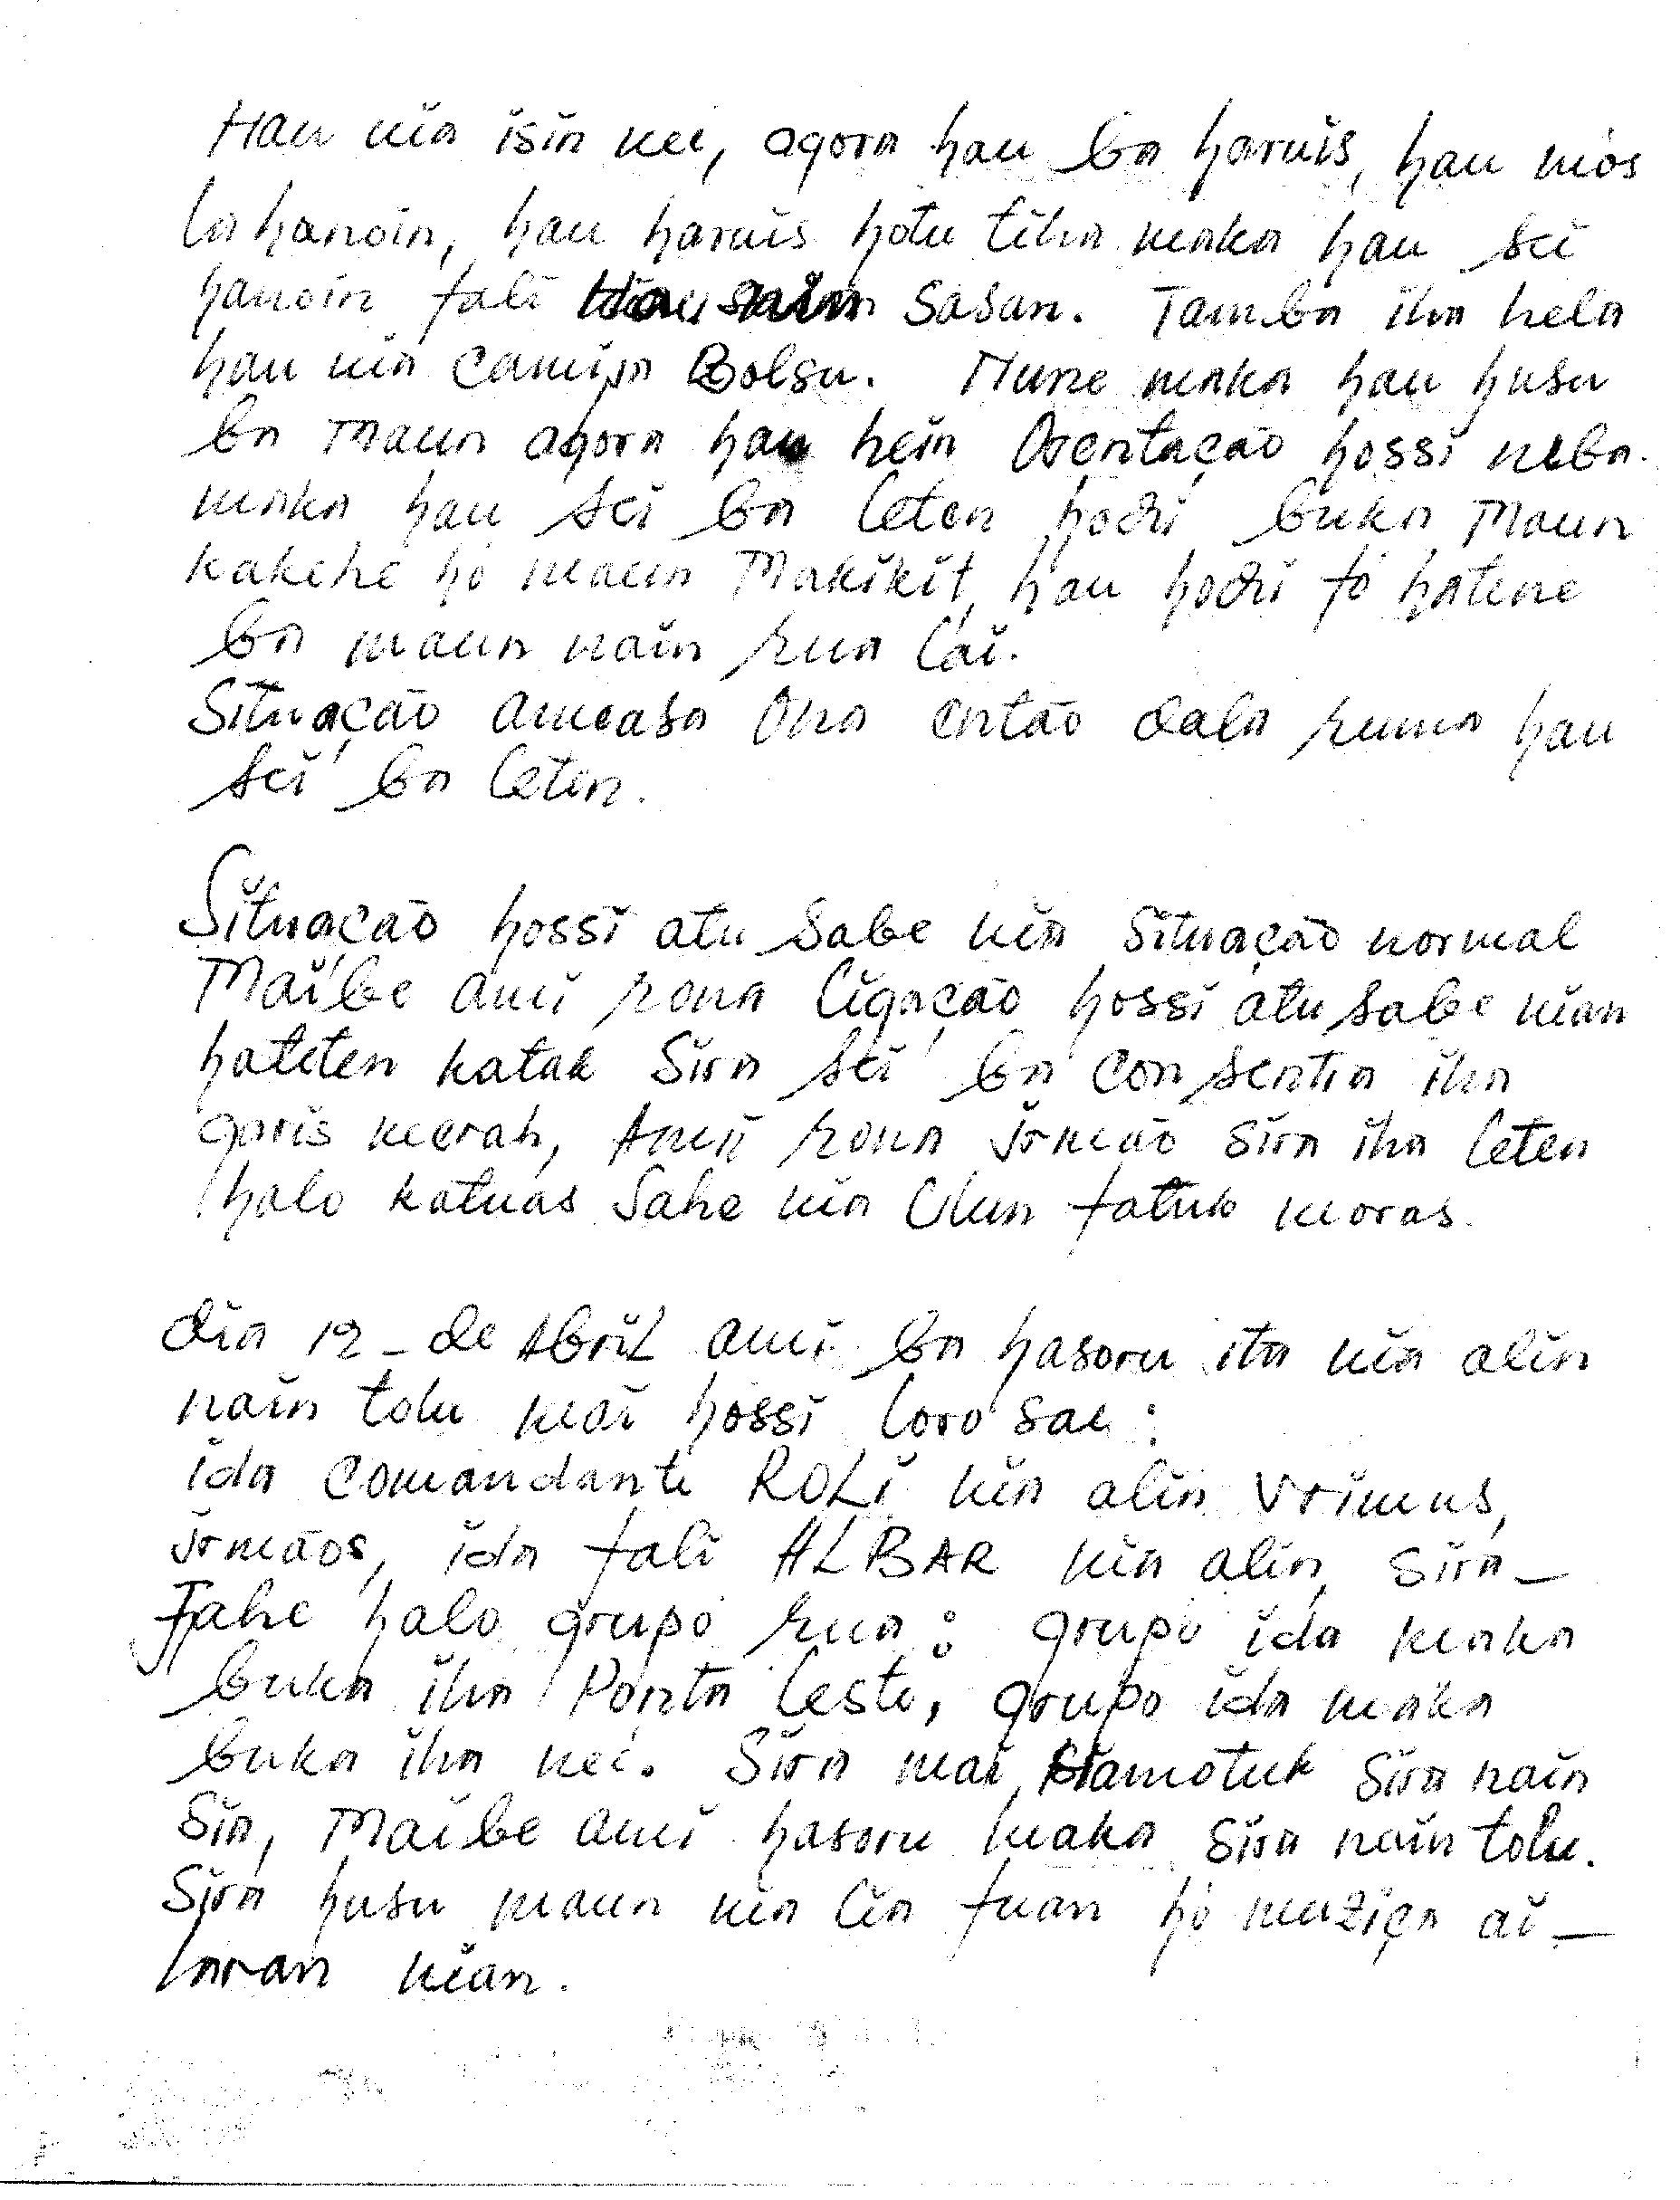 Hau nia isin nee, agora hau ba haruis, hau mós
la hanoin, hau haruis hotu tiha maka hau sei
hanoin fali sasan. Tamba iha hela
hau nia camija Bolsu. Nune maka hau husu
ba Maun agora hau hein Orentação hossi neba.
maka hau sei ba leten hodi buka Maun
kakehe hó maun Makikit, hau hodi fó hatene
ba maun nain rua lai.
Situação ameasa Ona então dala ruma hau
sei ba leten.
Situação hossi atu sabe nia situação normal
Maibe ami rona ligação hossi atu sabe nian
hateten katak Sira sei ba consentra iha
garis merah, Ami rona irmão sira iha leten
halo katuas Sahe nia Ulun fatuk moras.
dia 12 - de Abril ami ba hasoru ita nia alin
nain tolu mai hossi loro sae :
ida comandante ROLi nia alin Vrimus,
irmãos, ida fali ALBAR nia alin, sira -
Fahe halo grupo rua : grupo ida maka
buka iha Ponta leste, grupo ida maka
buka iha nee. Sira mai Hamotuk sira nain
Sia, Maibe ami hasoru maka sira nain tolu.
Sira husu maun nia lia fuan hó muziça ai -
laran nian.